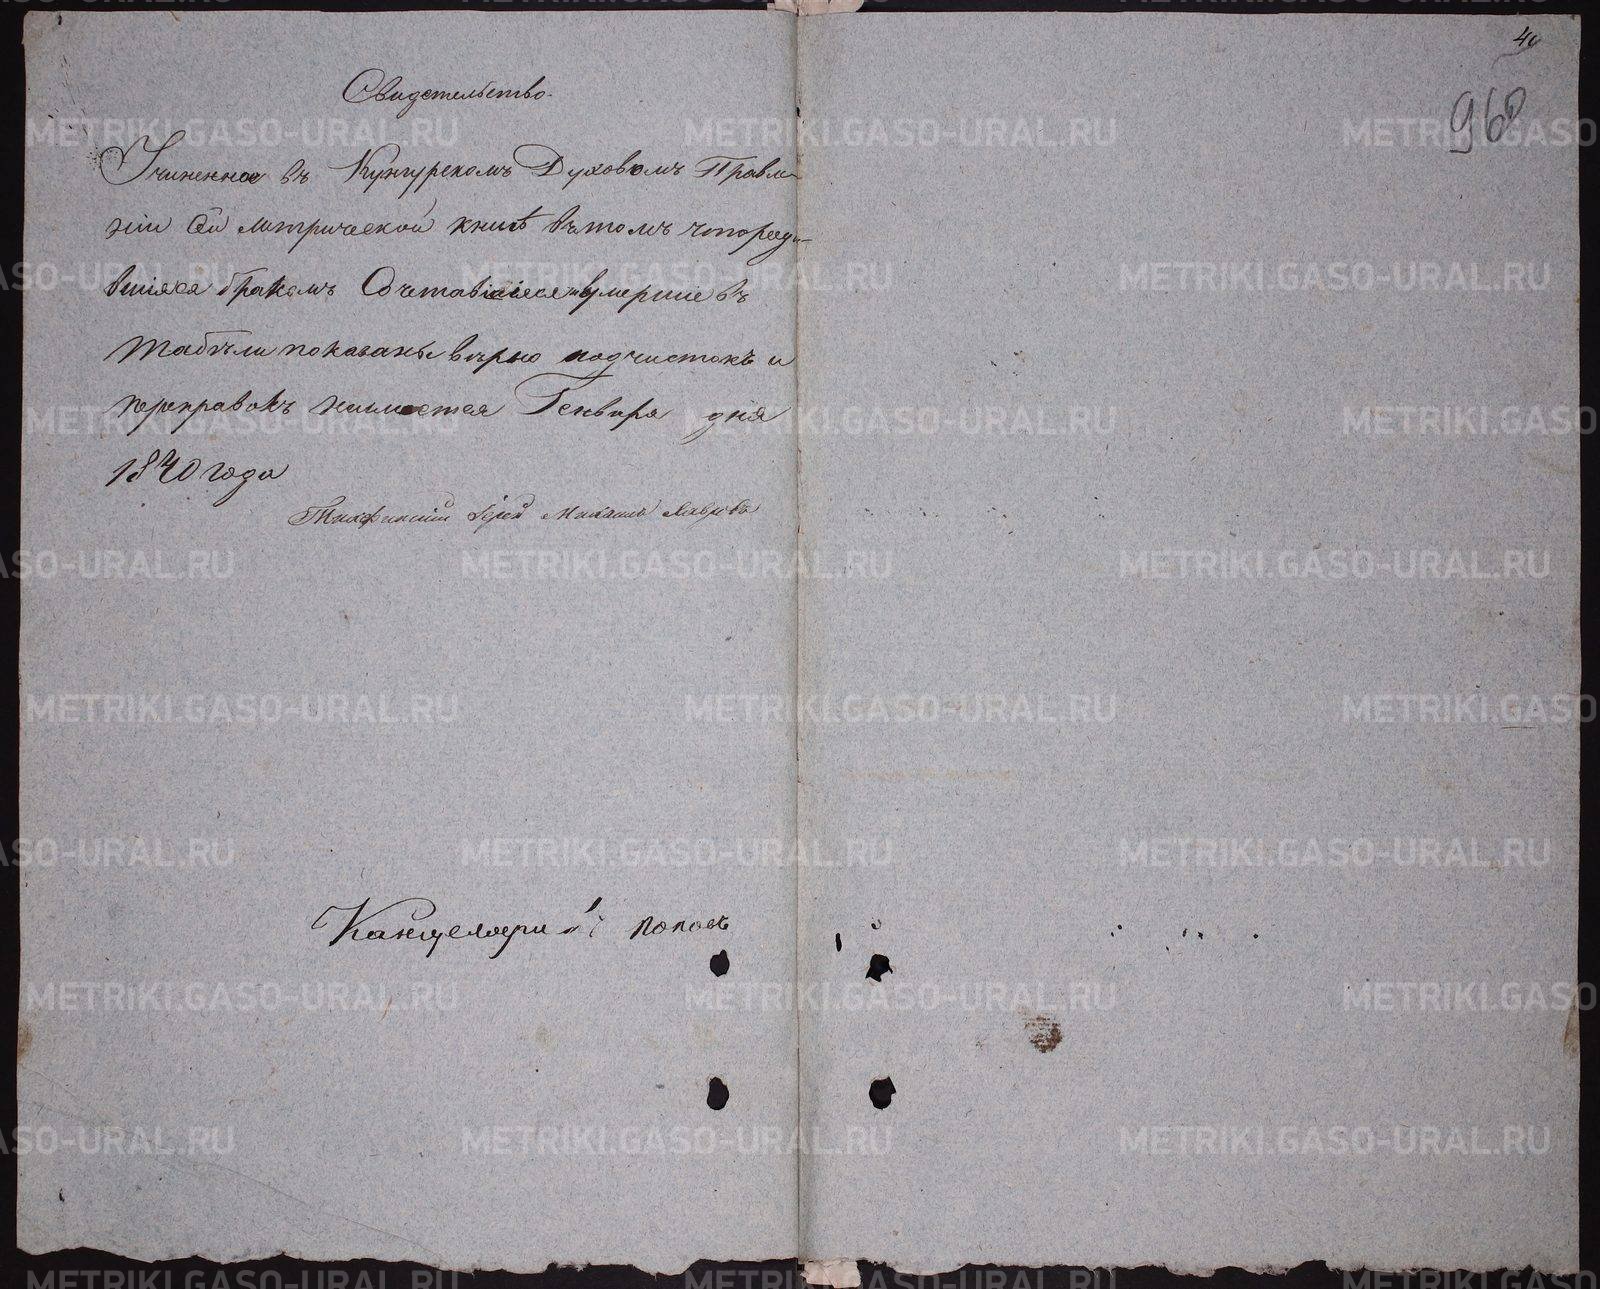 Свидетельство.
Учиненное въ Кунгурскомъ Духовомъ Правле-
ніи Сей метрической книгѣ въ томъ что роди-
вшіяся бракомъ Сочетавшіеся и умершіе въ
табели показаны верно подчистокъ и
переправокъ неимеется Генваря дня
1840 года
Іерей Михаилъ
Канцеляри Поповъ
960
METRIKI.GASO-URAL.RU